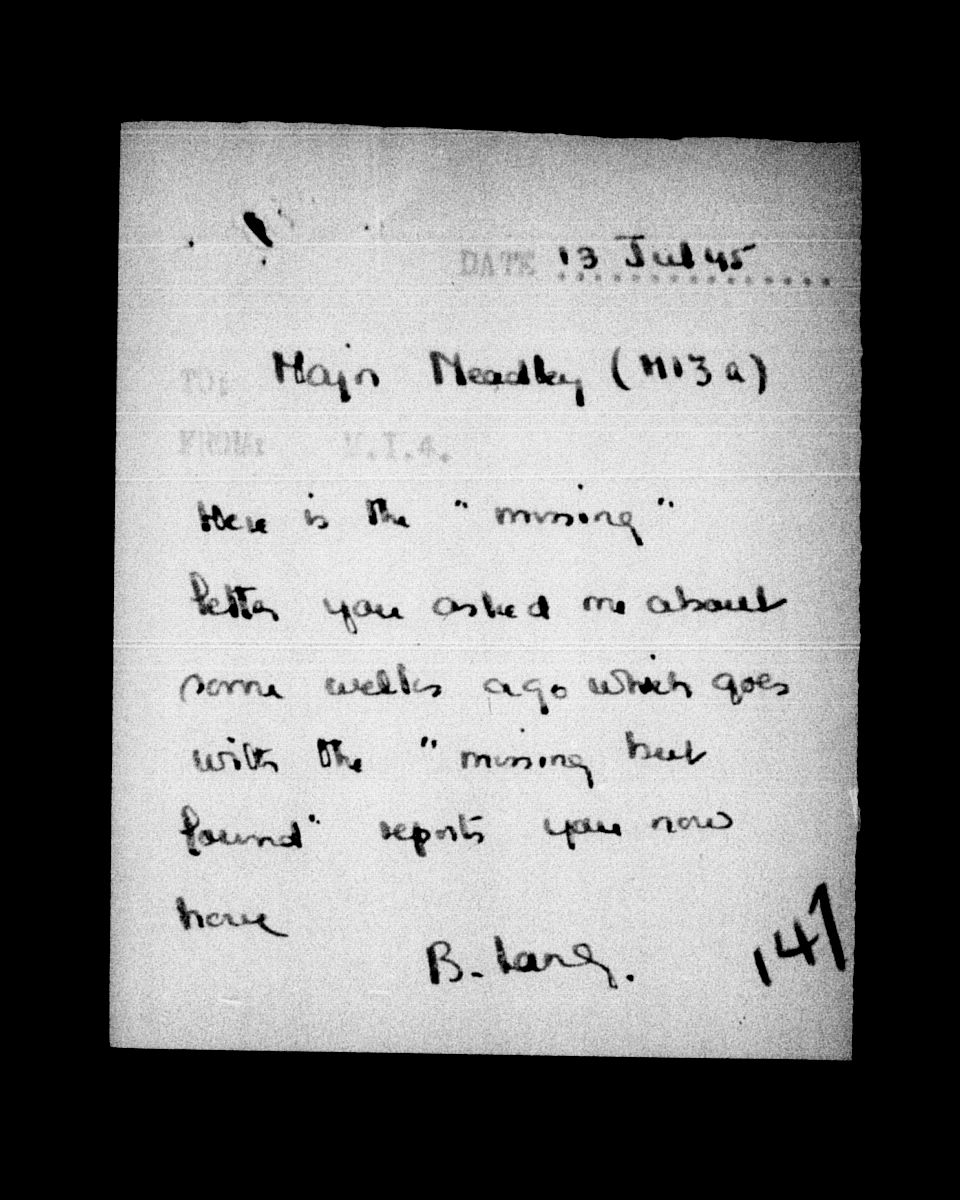 DATE 13 Jul 45
TO: Major Neadley (MI3a)
FROM: M.I.4.
Here is the "missing"
letter you asked me about
some weeks ago which goes
with the "missing but
found" reports you now
have
B. Lang.
147